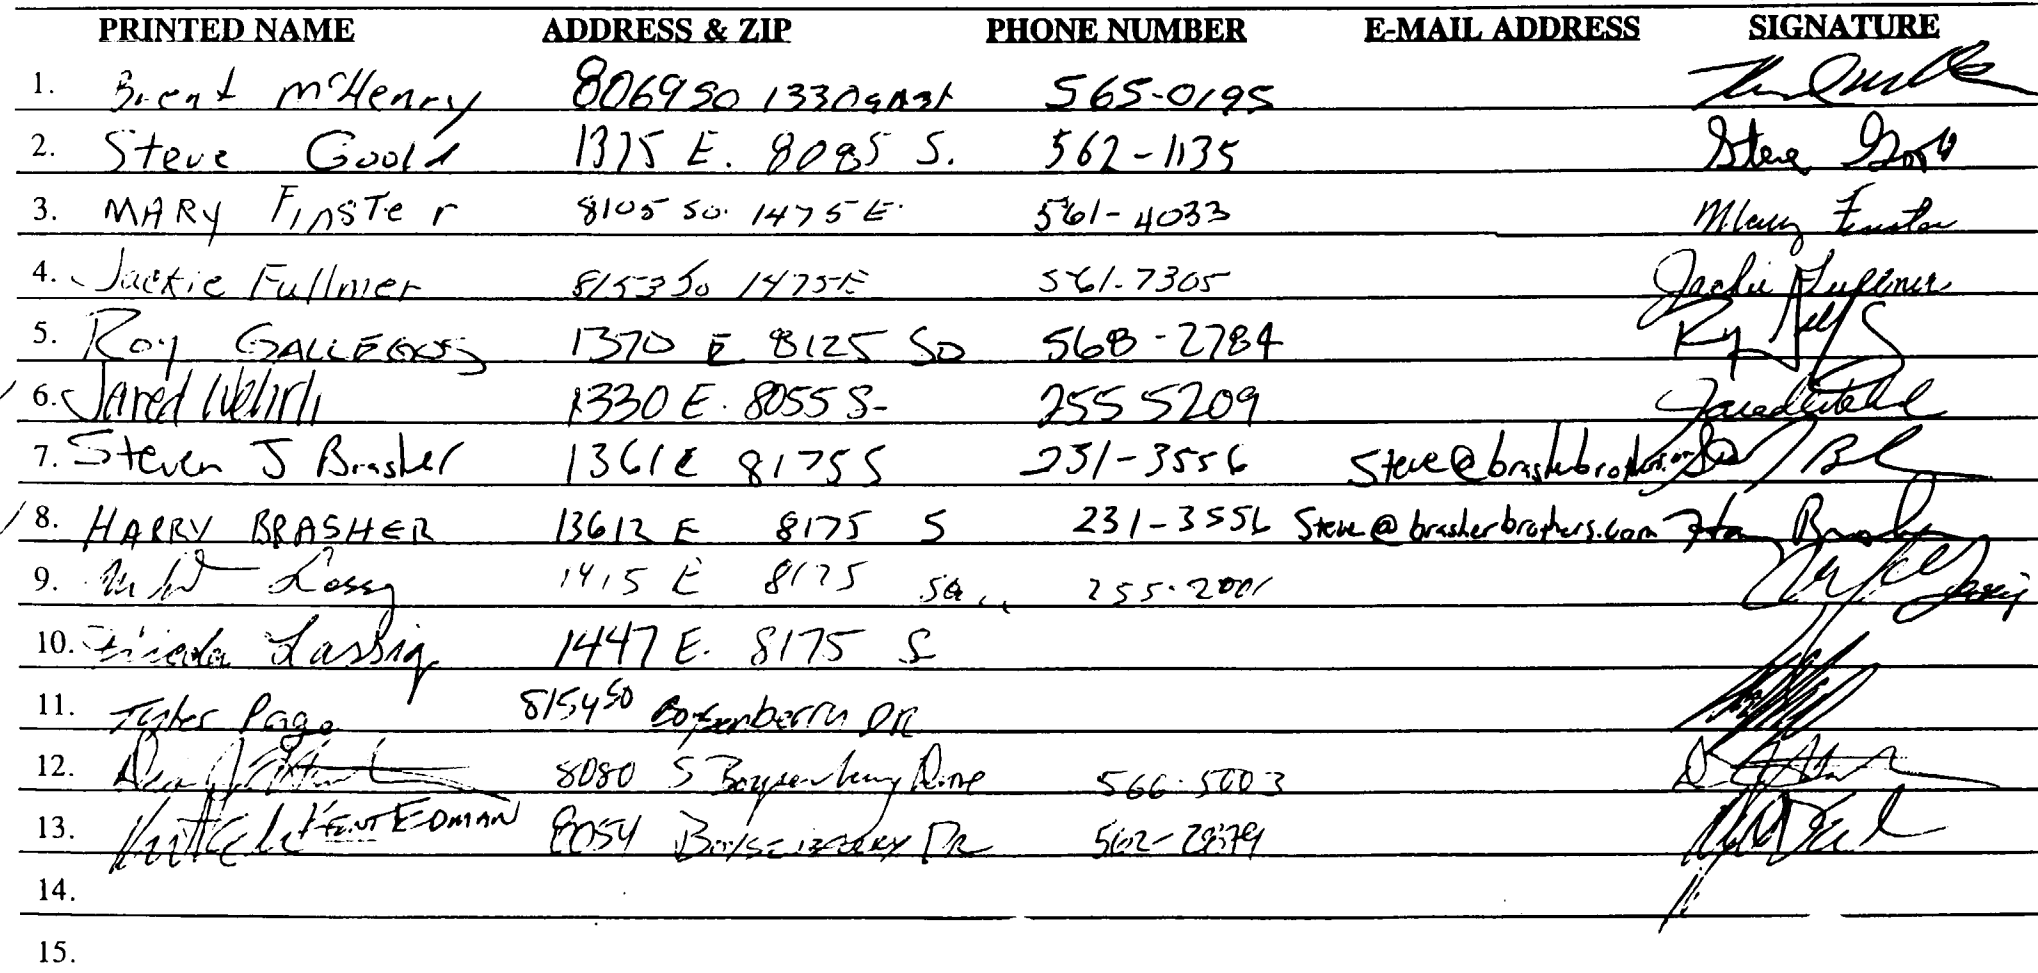 PRINTED NAME ADDRESS & ZIP PHONE NUMBER E-MAIL ADDRESS SIGNATURE
1. Brent McHenry 8069 SO 1330 East 565-0195
2. Steve Goold 1375 E. 8085 S. 562-1135 Steve Goold
3. MARy FinsTer 8105 So. 1475 E. 561-4033 Mary Finster
4. Jackie Fullmer 8153 So 1475 E 561-7305 Jackie Fullmer
5. Roy GALLEGOS 1370 E 8125 SO 568-2784
6. Jared Wehrli 1330 E. 8055 S. 255 5209
7. Steven J Brasher 1361 E 8175 S 231-3556
8. HARRY BRASHER E 8175 S 231-3556 Steve@brasherbrothers.com Harry
9. 1415 E 8175 So.
10. Lassig 1447 E. 8175 S
11. Tyler Page 8154 SO Boysenberry DR
12. 8080 S Boysenberry Drive 566-5003
13. KENT EDMAN 8054 DR
14.
15.